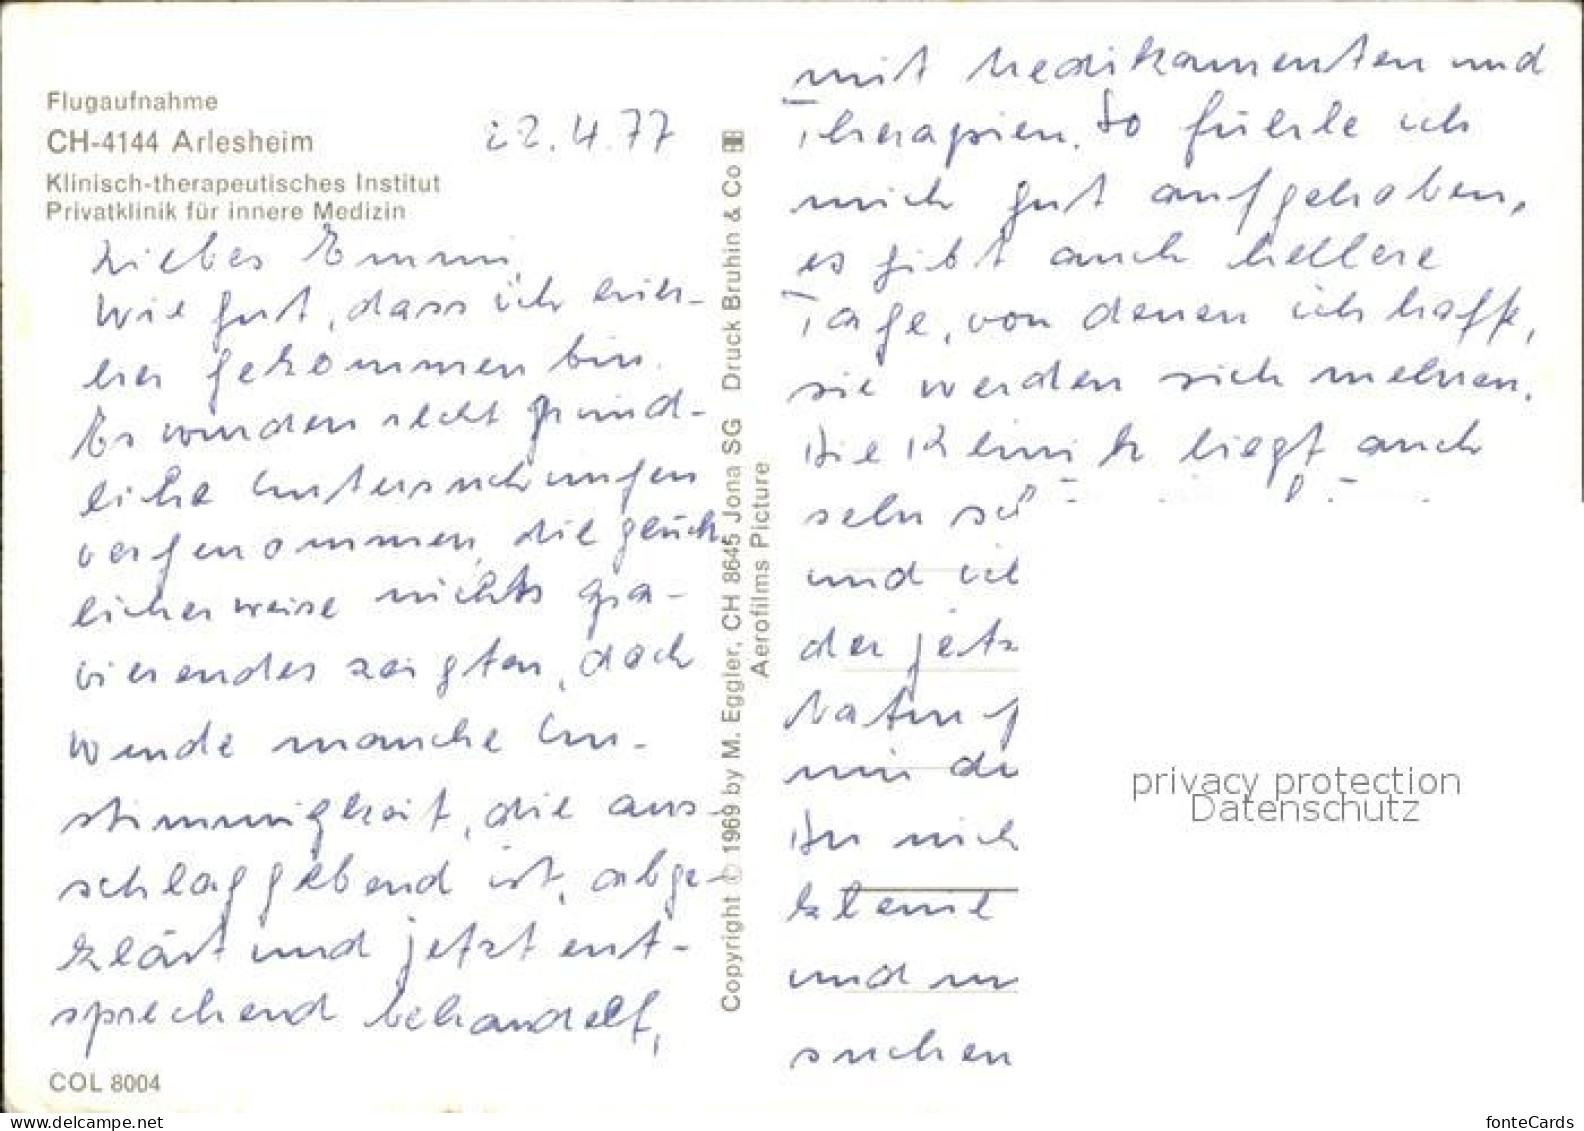 Flugaufnahme
CH-4144 Arlesheim
Klinisch-therapeutisches Institut
Privatklinik für innere Medizin
22.4.77
Liebes Emmi,
Wie gut, dass ich hier-
her gekommen bin.
Es wurden recht gründ-
liche Untersuchungen
vorgenommen, die glück
licherweise nichts gra-
vierendes zeigten, doch
wurde manche Un-
stimmigkeit, die aus-
schlaggebend ist, abge-
klärt und jetzt ent-
sprechend behandelt,
COL 8004
Copyright © 1969 by M. Eggler, CH 8645 Jona SG Druck Bruhin & Co
Aerofilms Picture
mit Medikamenten und
Therapien. So fühle ich
mich gut aufgehoben,
es gibt auch hellere
Tage, von denen ich hoffe,
sie werden sich mehren.
Die Klinik liegt auch
sehr
und
der jetz
Natur
mir
Du
könnt
und
suchen
privacy protection
Datenschutz
www.ansichtskartenversand.com
fonteCards